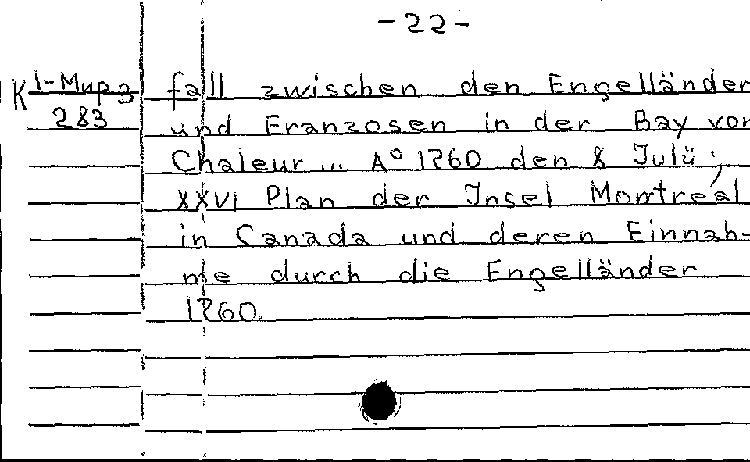 -22-
K 1-Мир3
283
fall zwischen den Engelländer
und Franzosen in der Bay von
Chaleur ... A° 1760 den 8 Julü;
XXVI Plan der Insel Montreal
in Canada und deren Einnah-
me durch die Engelländer
1760.